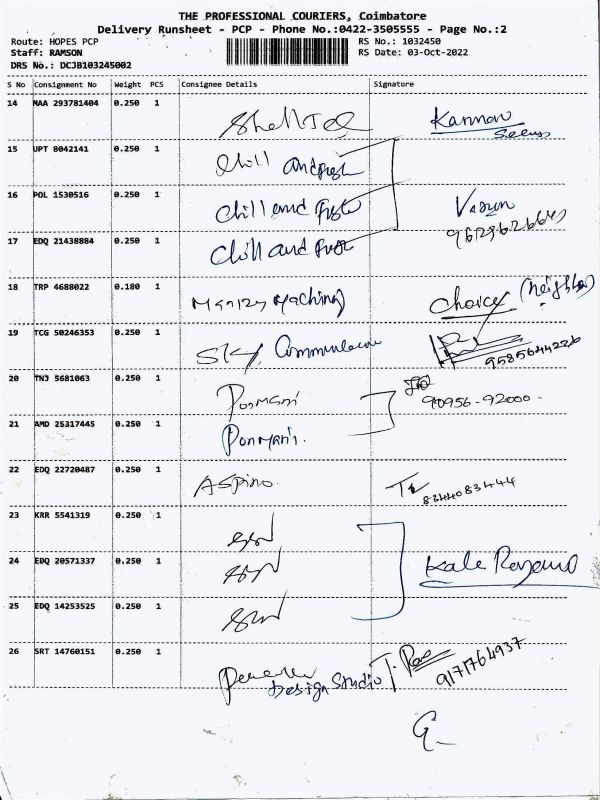 THE PROFESSIONAL COURIERS, Coimbatore
Delivery Runsheet - PCP - Phone No.:0422-3505555 - Page No.:2
Route: HOPES PCP RS No.: 1032450
Staff: RAMSON RS Date: 03-Oct-2022
DRS No.: DCJB103245002
S No Consignment No Weight PCS Consignee Details Signature
14 MAA 293781404 0.250 1 Kannan
15 UPT 8042141 0.250 1 Chill and
16 POL 1530516 0.250 1 Chill and
17 EDQ 21438884 0.250 1 Chill and
18 TRP 4688022 0.180 1 choice (neighbor)
19 TCG 50246353 0.250 1 SKY 9585644226
20 TNJ 5681063 0.250 1 Ponmani 90956-92000
21 AMD 25317445 0.250 1 Ponmani
22 EDQ 22720487 0.250 1 Aspino 8344083444
23 KRR 5541319 0.250 1
24 EDQ 20571337 0.250 1
25 EDQ 14253525 0.250 1
26 SRT 14760151 0.250 1 9171764937
Design Studio